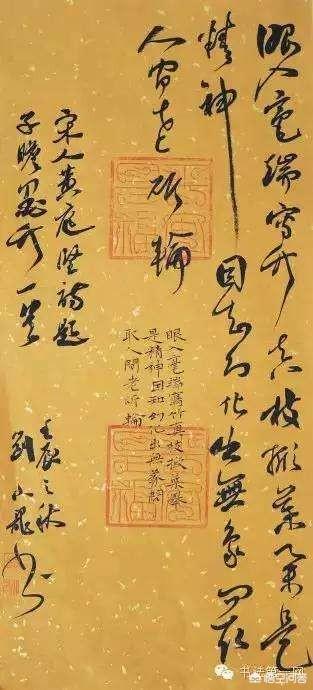 眼入毫端寫竹真枝掀葉舉是
精神 因知幻化出無象問取
人間老斫輪
眼入毫端寫竹真枝掀葉舉
是精神因知幻化出無象問
取人間老斫輪
宋人黃庭堅詩題
子瞻墨竹一首
壬辰之秋
劉
书法第一网
悟空问答